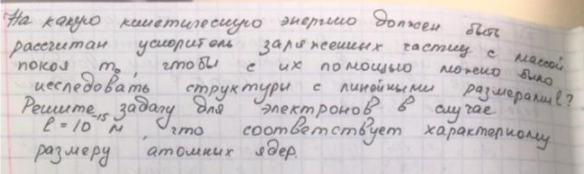 На какую кинетическую энергию должен быть
рассчитан ускоритель заряженных частиц с массой
покоя m₀, чтобы с их помощью можно было
исследовать структури с линейными размерами l?
Решите задачу для электронов в случае
l = 10⁻¹⁵ м, что соответствует характерному
размеру атомных ядер.